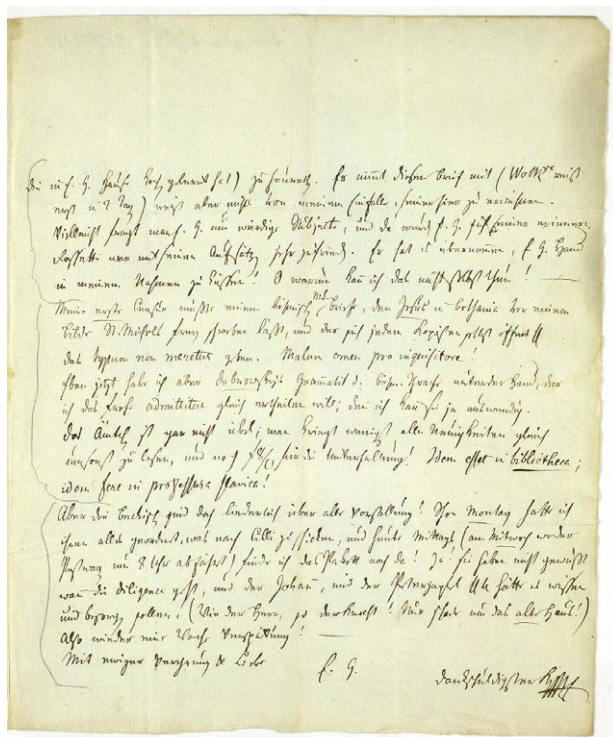 die in E. G. Hause Koch gelernt hat) zu heurath. Er nimt diesen Brief mit (Wolk weiß
erst n. 2 Tag) weiß aber nicht von meinem Einfalle, seiner hier zu erwähnen.
Vielleicht fragt man E. G. um würdige Subjecte, und da würd E. G. sich seiner erinnern.
war mit seinen Aufsätzen sehr zufrieden. Er hat es übernommen, E. G. Hand
in meinem Nahmen zu küssen! O warum kan ich das nicht selbst thun! —
Meine erste Censur mußte einem böhmisch briefe, den Jesus in bethania vor meinem
bilde St. Michels lassen läßt, und der sich jedem selbst öffnet
das typum non meretur geben. Malum omen pro inquisitore!
Eben jetzt hab ich aber dobrowskys Grammatik d. böhm. Sprache unter der Hand, der
ich das frohe admittitur gleich ertheilen will; den ich kan sie ja auswendig.
das Ämtch ist gar nicht übel; man kriegt wenigst alle Neuigkeiten gleich
umsonst zu lesen, und noch für die Unterhaltung! Idem esset in bibliotheca;
idem fere in professura slavica!
Aber die sind doch liederlich über alle Vorstellung! Schon Montag hatte ich
ihnen alles geordnet, was nach Cilli zu schicken, und heute Mittags (am Mitwoch wo der
Postwag um 8 Uhr abfährt) finde ich das Pakett noch da! Ja! sie haben nicht gewußt
wan die diligence geht, und der Johann, und der hätte es wissen
und besorgen sollen. (Wie der Herr, so der Knecht! Nur schade um das alte Haus!)
Also wieder eine Woche Verspätung! —
Mit ewiger Verehrung & Liebe
E. G.
dankschuldigster